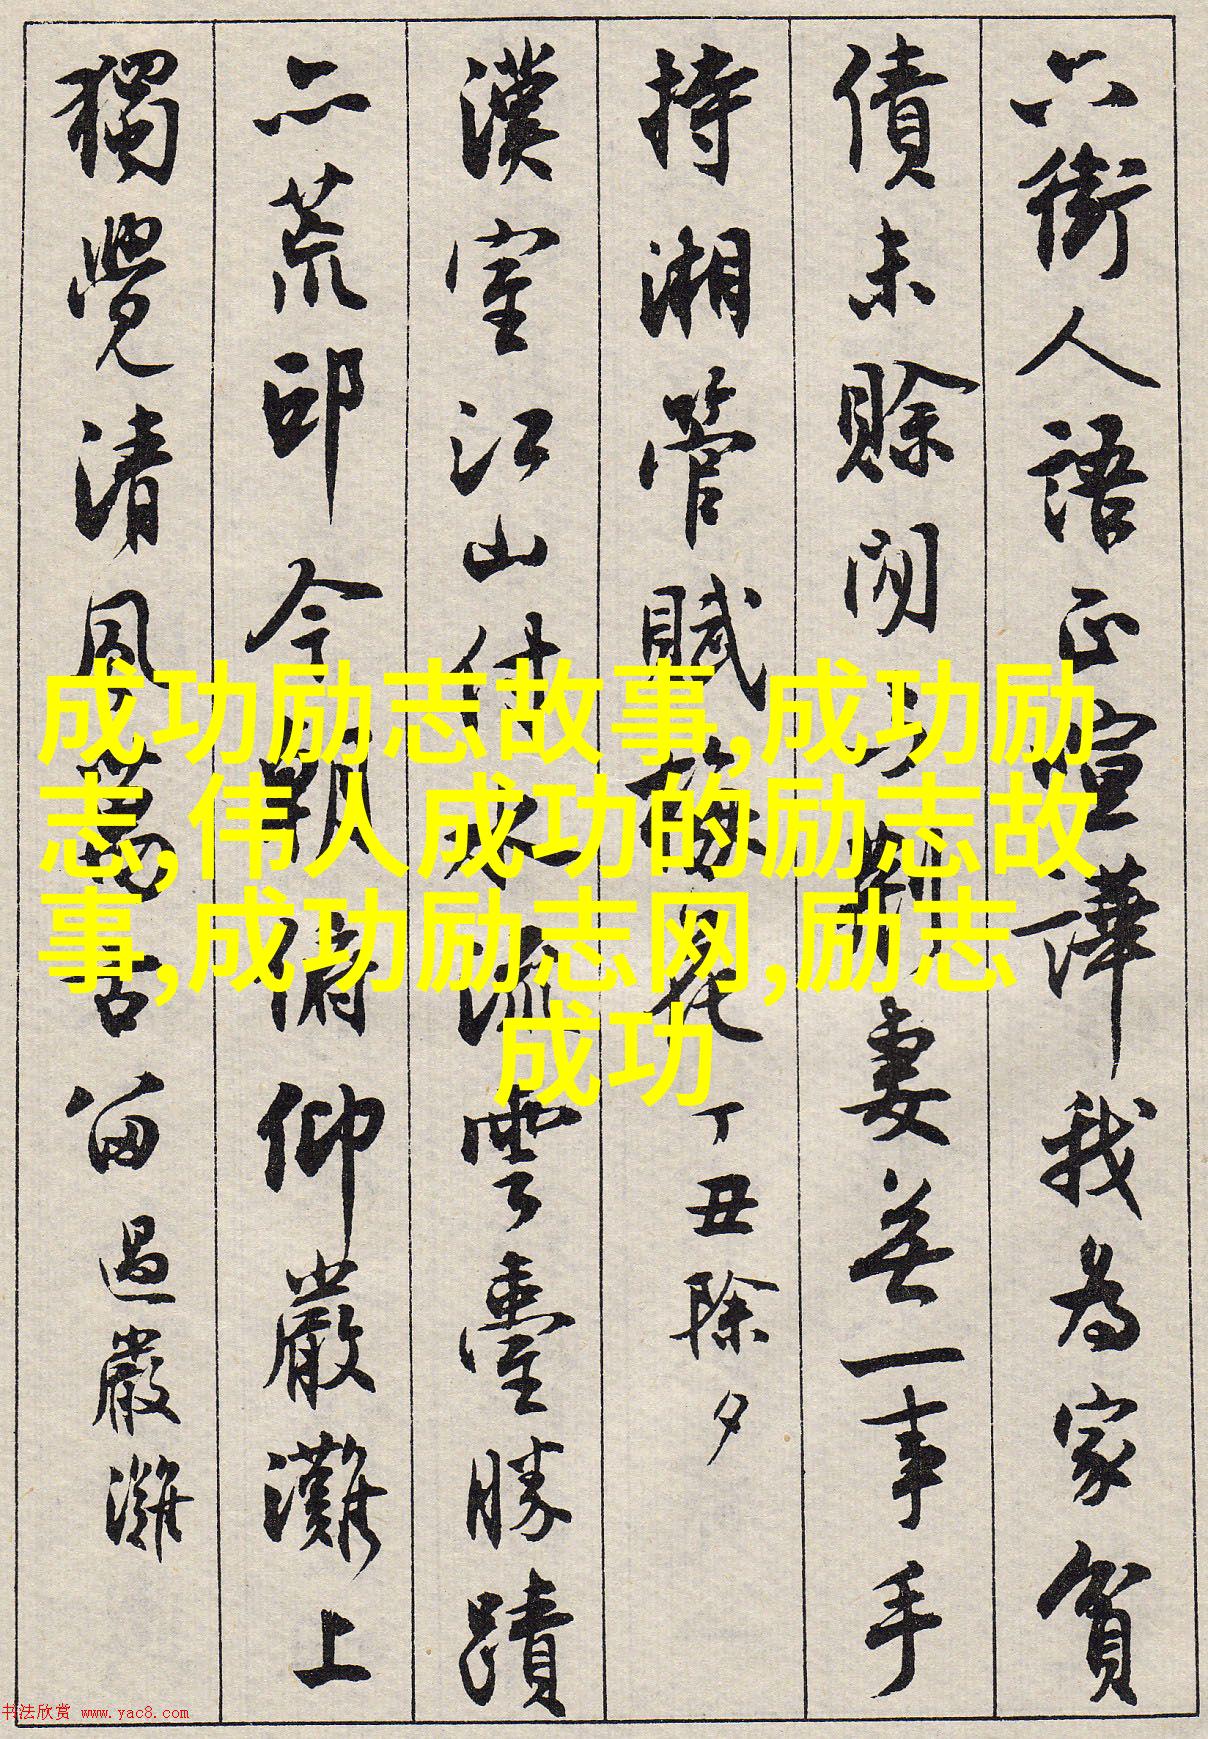 六街人語正喧譁我為家貧
債未賒閒與荊妻無一事手
持湘管賦梅花丁丑除夕
漢室江山付水流雲臺勝蹟
亦荒邱今朝俯仰嚴灘上
獨覺清風萬古留過嚴灘
成功励志故事,成功励
志,伟人成功的励志故
事,成功励志网,励志
成功
书法欣赏 www.yac8.com